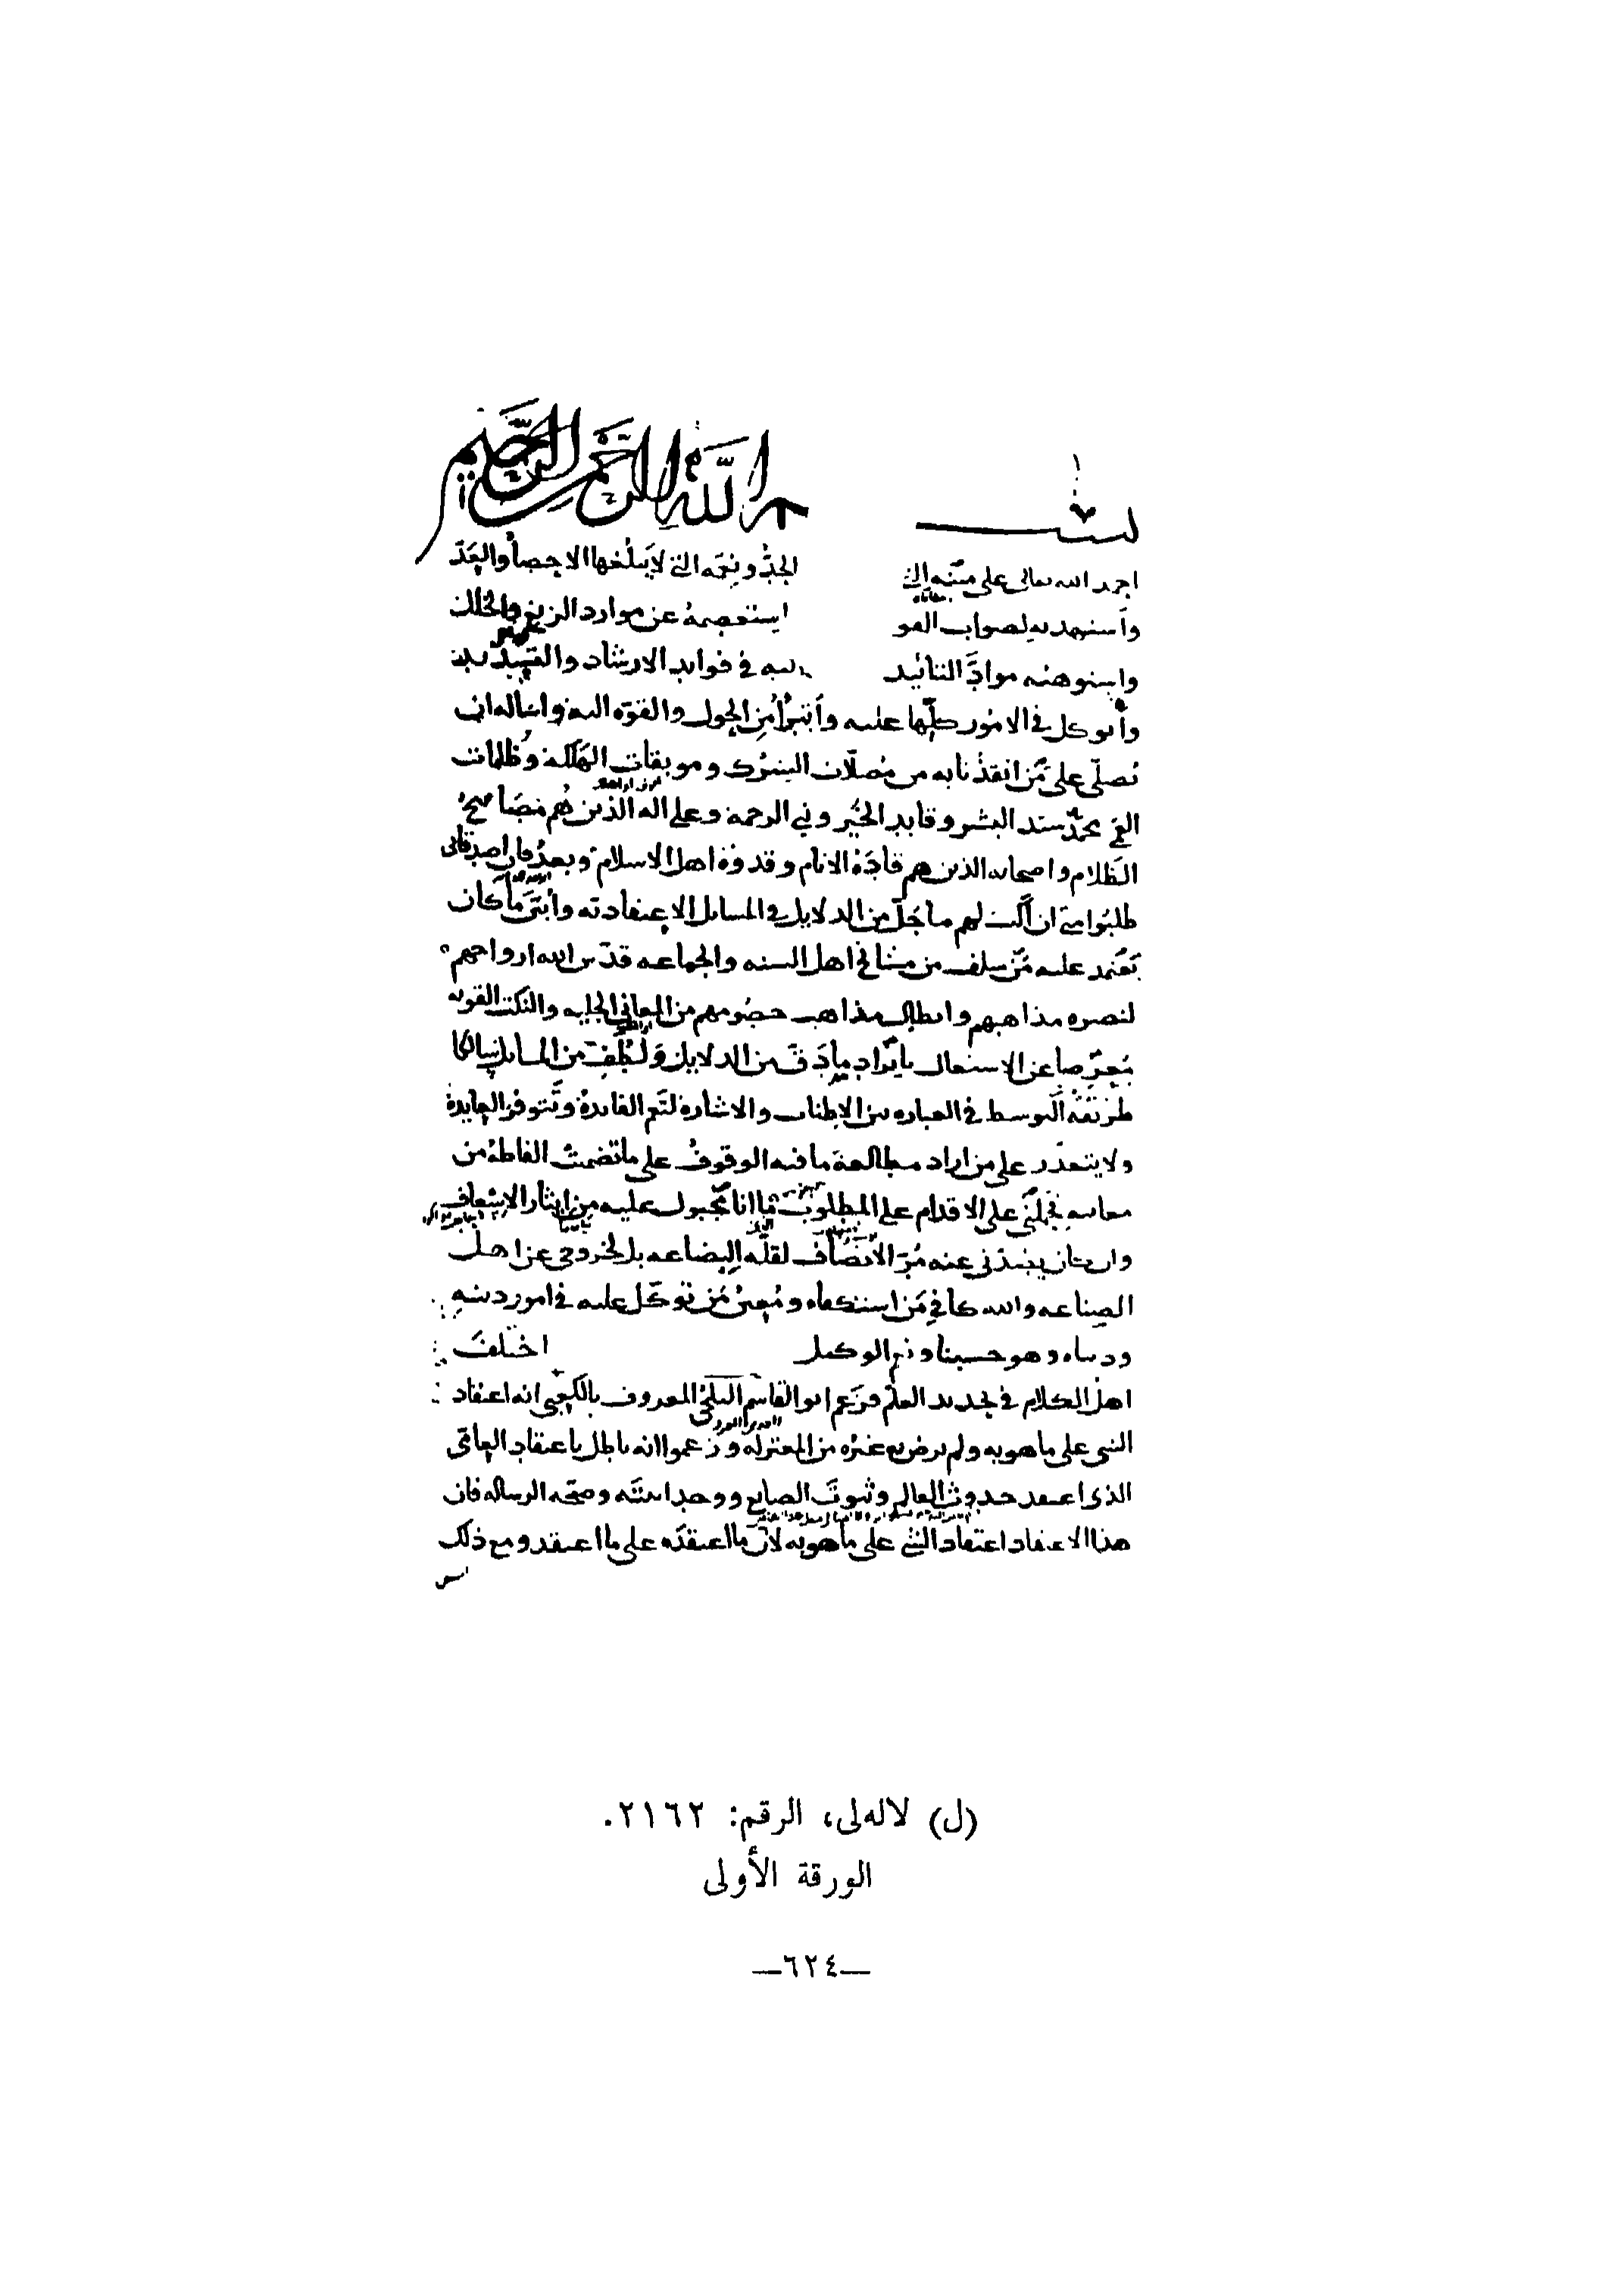 بسم الله الرحمن الرحيم
احمد الله تعالى على مننه التي الجد ونعمه التي لا يبلغها الاحصا والعد
واستهديه لصواب القو استعصمه عن موارد الزيغ والخلل
موادّ التائيد في فوايد الارشاد والتسديد
واتوكل في الامور كلّها عليه وأتبرأ من الحول والقوّه اليه واساله ان
نصلّي على من انقذنا به من مضلّات الشرك وموبقات الهلكه وظلمات
الغي محمّد سيد البشر وقايد الخير ونبي الرحمة وعلى اله الذين هم مصابيح
الظلام واصحابه الذين هم قادة الانام وقدوة اهل الاسلام وبعد فان اصدقائي
طلبوا مني ان اكتب لهم ما جلّ من الدلايل في المسايل الاعتقادية وأبيّن ما كان
يعتمد عليه من سلف من مشايخ اهل السنه والجماعه قدّس الله ارواحهم
لنصره مذاهبهم وابطال مذاهب خصومهم من المعاني الجليه والنكت القويه
معرضا عن الاشتغال بايراد ما دقّ من الدلايل ولطف من المسايل سالكا
طريقة التوسط في العباره بين الاطناب والاشارة لتتم الفائدة وتتوفر العايدة
ولا يتعذّر على من اراد مطالعة ما فيه الوقوف على ما تضمنت الفاظه من
معانيه فحملني على الاقدام على المطلوب ما انا مجبول عليه من ايثار الاسعاف
وان كان يجذبني عنه مُرّ الانصاف لقلّه البضاعه بل لخروجي عن اهل
الصناعه والله كافي من استكفاه ومعين من توكّل عليه في امور دينه
ودنياه وهو حسبنا ونعم الوكيل اختلف
اهل الكلام في تحديد العلم فزعم ابو القاسم البلخي المعروف بالكعبي انه اعتقاد
الشي على ما هو به ولم يرض به غيره من المعتزله وزعموا انه باطل باعتقاد العامّي
الذي اعتقد حدوث العالم وثبوت الصانع ووحدانيته وصحّه الرساله فان
هذا الاعتقاد اعتقاد الشي على ما هو به لانّ ما اعتقده على ما اعتقد ومع ذلك
(ل) لالەلى، الرقم: ٢١٦٢.
الورقة الأولى
—٦٢٤—